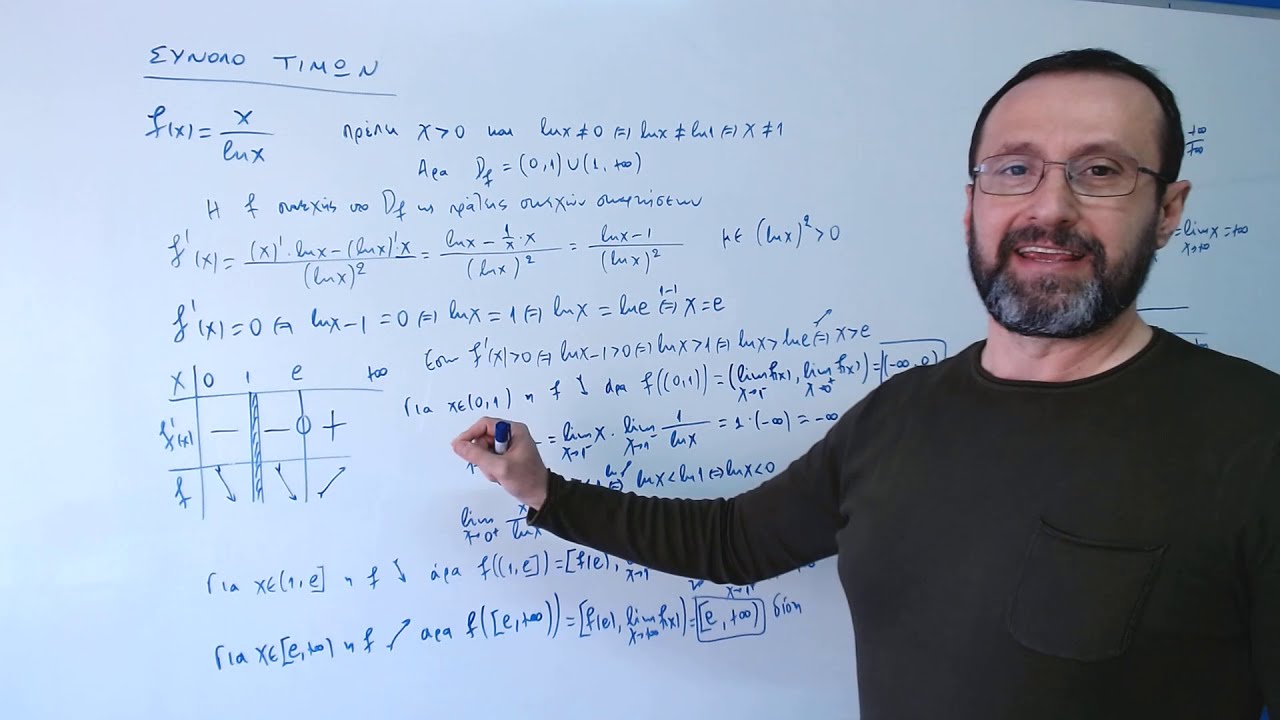 ΣΥΝΟΛΟ ΤΙΜΩΝ
f(x) = x/lnx πρέπει x>0 και lnx≠0 ⇔ lnx≠ln1 ⇔ x≠1
Άρα D_f = (0,1)∪(1,+∞)
Η f συνεχής στο D_f ως πράξεις συνεχών συναρτήσεων
f'(x) = ((x)'·lnx-(lnx)'·x)/(lnx)² = (lnx-1/x·x)/(lnx)² = (lnx-1)/(lnx)² με (lnx)²>0
f'(x)=0 ⇔ lnx-1=0 ⇔ lnx=1 ⇔ lnx=lne ⇔(1-1) x=e
Έστω f'(x)>0 ⇔ lnx-1>0 ⇔ lnx>1 ⇔ lnx>lne ⇔(↗) x>e
x 0 1 e +∞
f'(x) − − 0 +
f ↘ ↘ ↗
Για x∈(0,1) η f ↘ άρα f((0,1))=(lim x→1⁻ f(x), lim x→0⁺ f(x))=(-∞,0)
= lim x→1⁻ x · lim x→1⁻ 1/lnx = 1·(-∞) = -∞
lnx<ln1 ⇔ lnx<0
lim x→0⁺ x/lnx
Για x∈(1,e] η f ↘ άρα f((1,e])=[f(e),
Για x∈[e,+∞) η f ↗ άρα f([e,+∞))=[f(e), lim x→+∞ f(x))=[e,+∞) διότι
+∞/+∞
= lim x→+∞ x = +∞